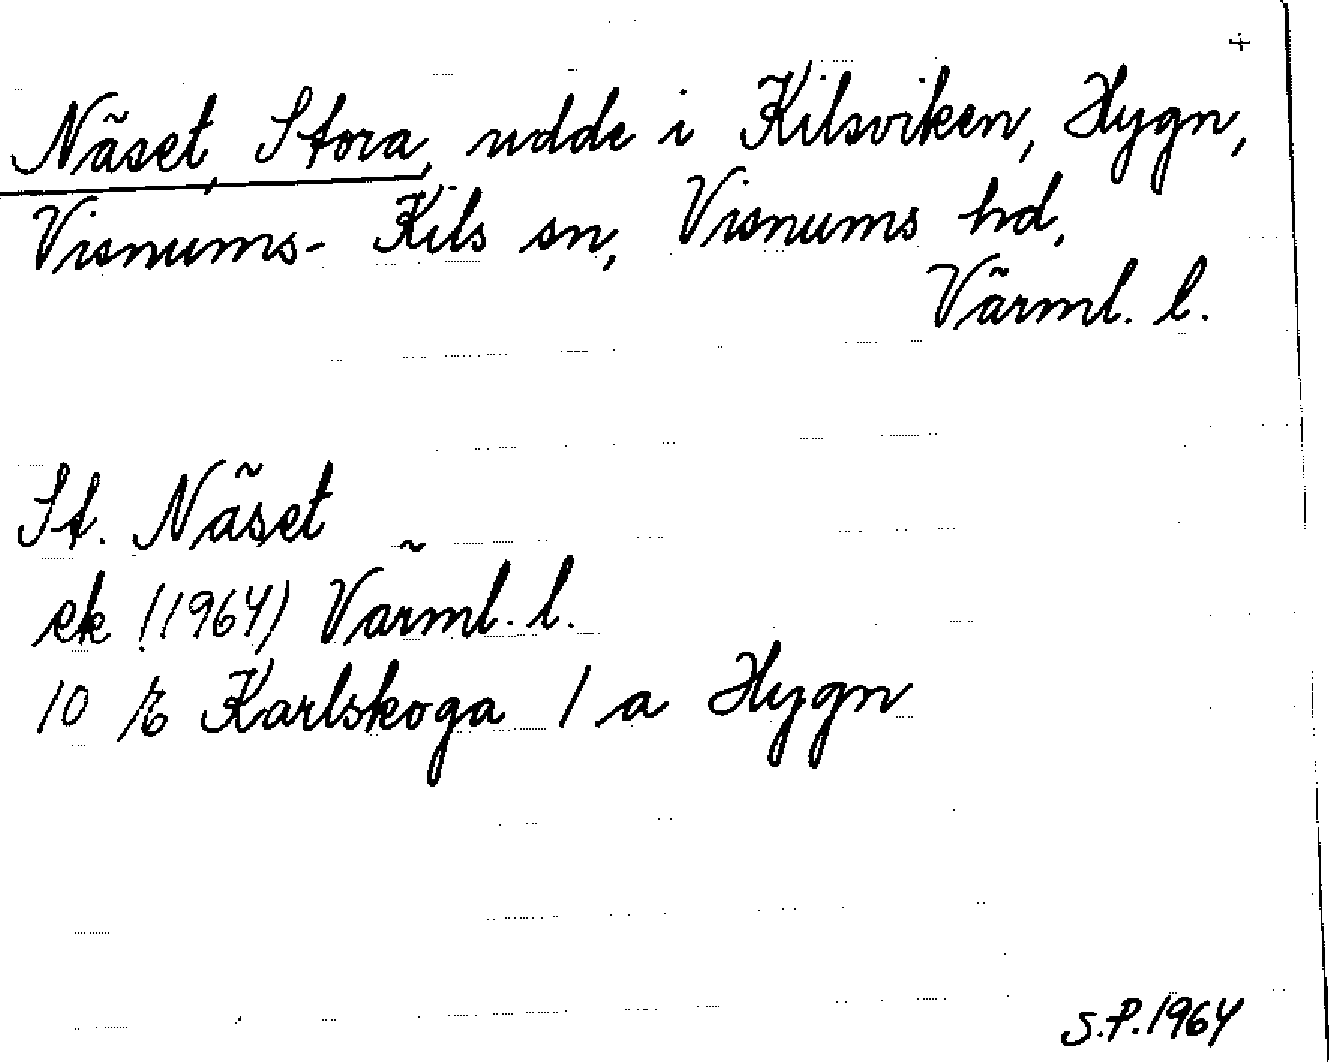 +
Näset, Stora, udde i Kilsviken, Hygn,
Visnums-Kils sn, Visnums hd,
Värml. l.
St. Näset
ek (1964) Värml. l.
10 E Karlskoga 1 a Hygn
S.P. 1964